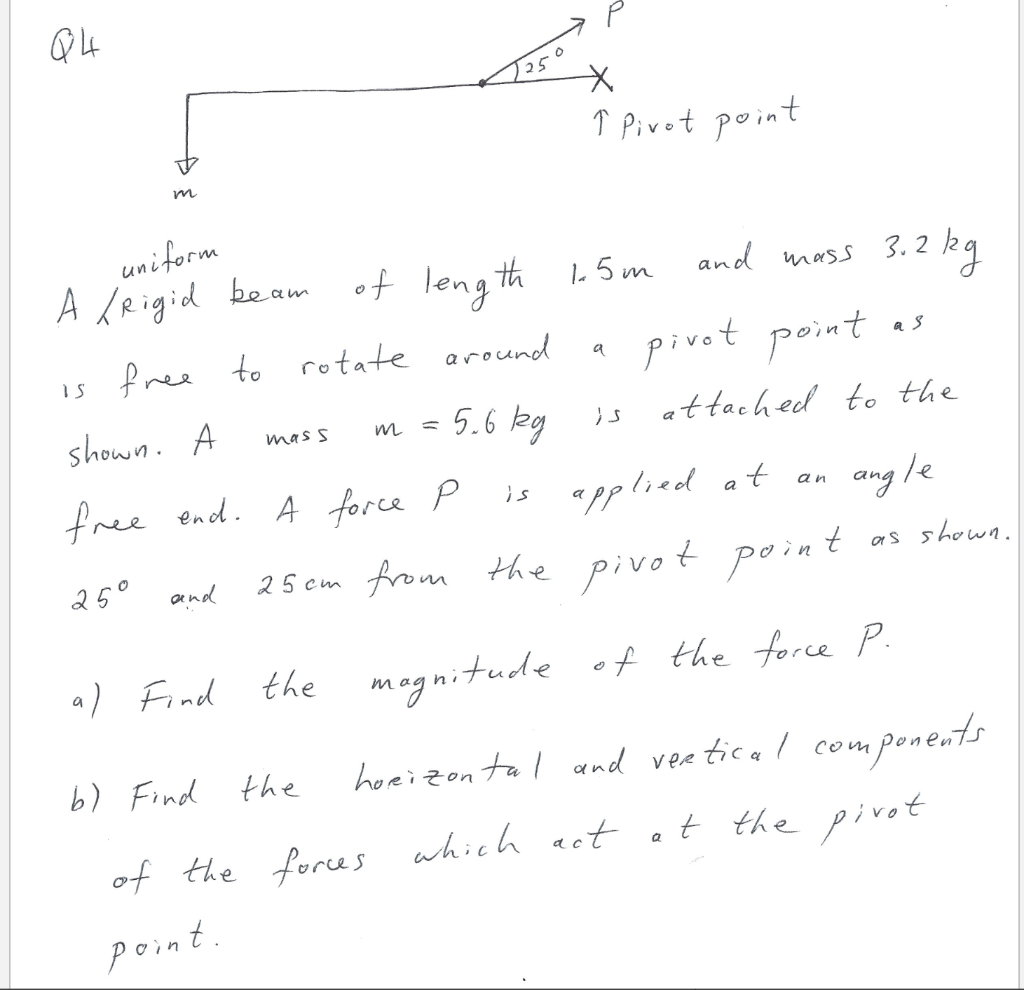 Q4
P
25°
↑ Pivot point
m
uniform
A Rigid beam of length 1.5m and mass 3.2 kg
is free to rotate around a pivot point as
shown. A mass m = 5.6 kg is attached to the
free end. A force P is applied at an angle
25° and 25 cm from the pivot point as shown.
a) Find the magnitude of the force P.
b) Find the horizontal and vertical components
of the forces which act at the pivot
point.